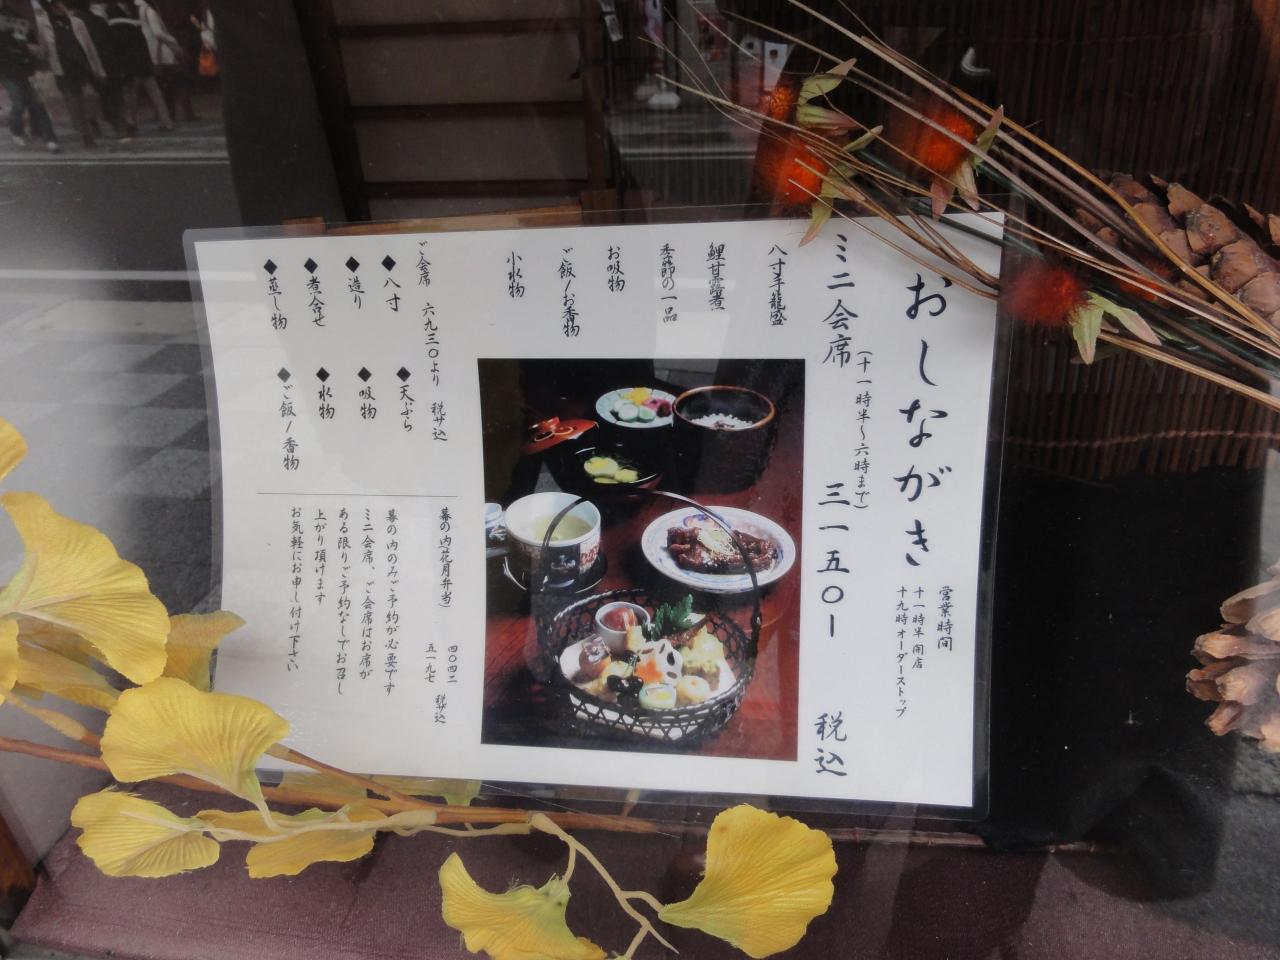 おしながき
営業時間
十一時半 開店
十九時 オーダーストップ
ミニ会席 三一五〇ー 税込
(十一時半～六時まで)
八寸手籠盛
鯉甘露煮
季節の一品
お吸物
ご飯/お香物
小水物
ご会席 六九三〇より 税サ込
◆八寸
◆造り
◆煮合せ
◆蒸し物
◆天ぷら
◆吸物
◆水物
◆ご飯/香物
幕の内(花月弁当) 四〇四二
五一九七 税サ込
幕の内のみご予約が必要です
ミニ会席、ご会席はお席が
ある限りご予約なしでお召し
上がり頂けます
お気軽にお申し付け下さい